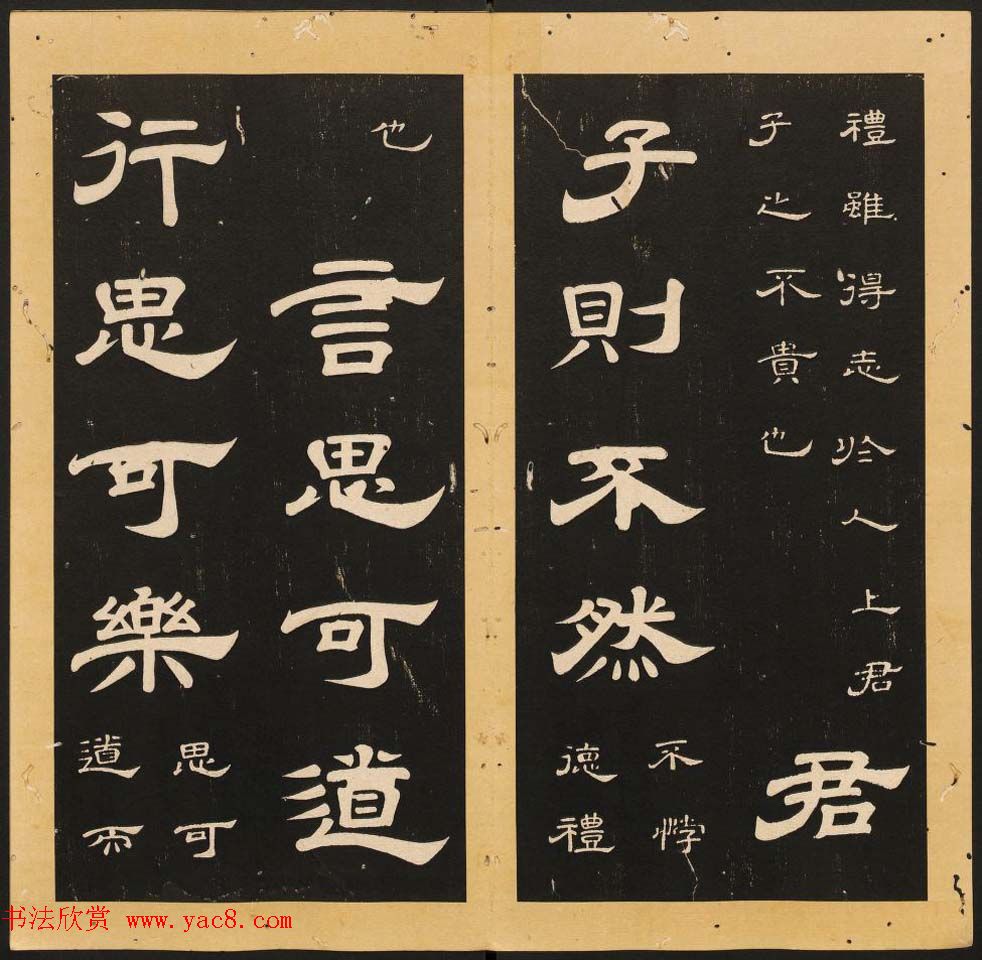 禮雖得志於人上君
子之不貴也
君
子則不然
不悖
德禮
也
言思可道
行思可樂
思可
道而
书法欣赏 www.yac8.com